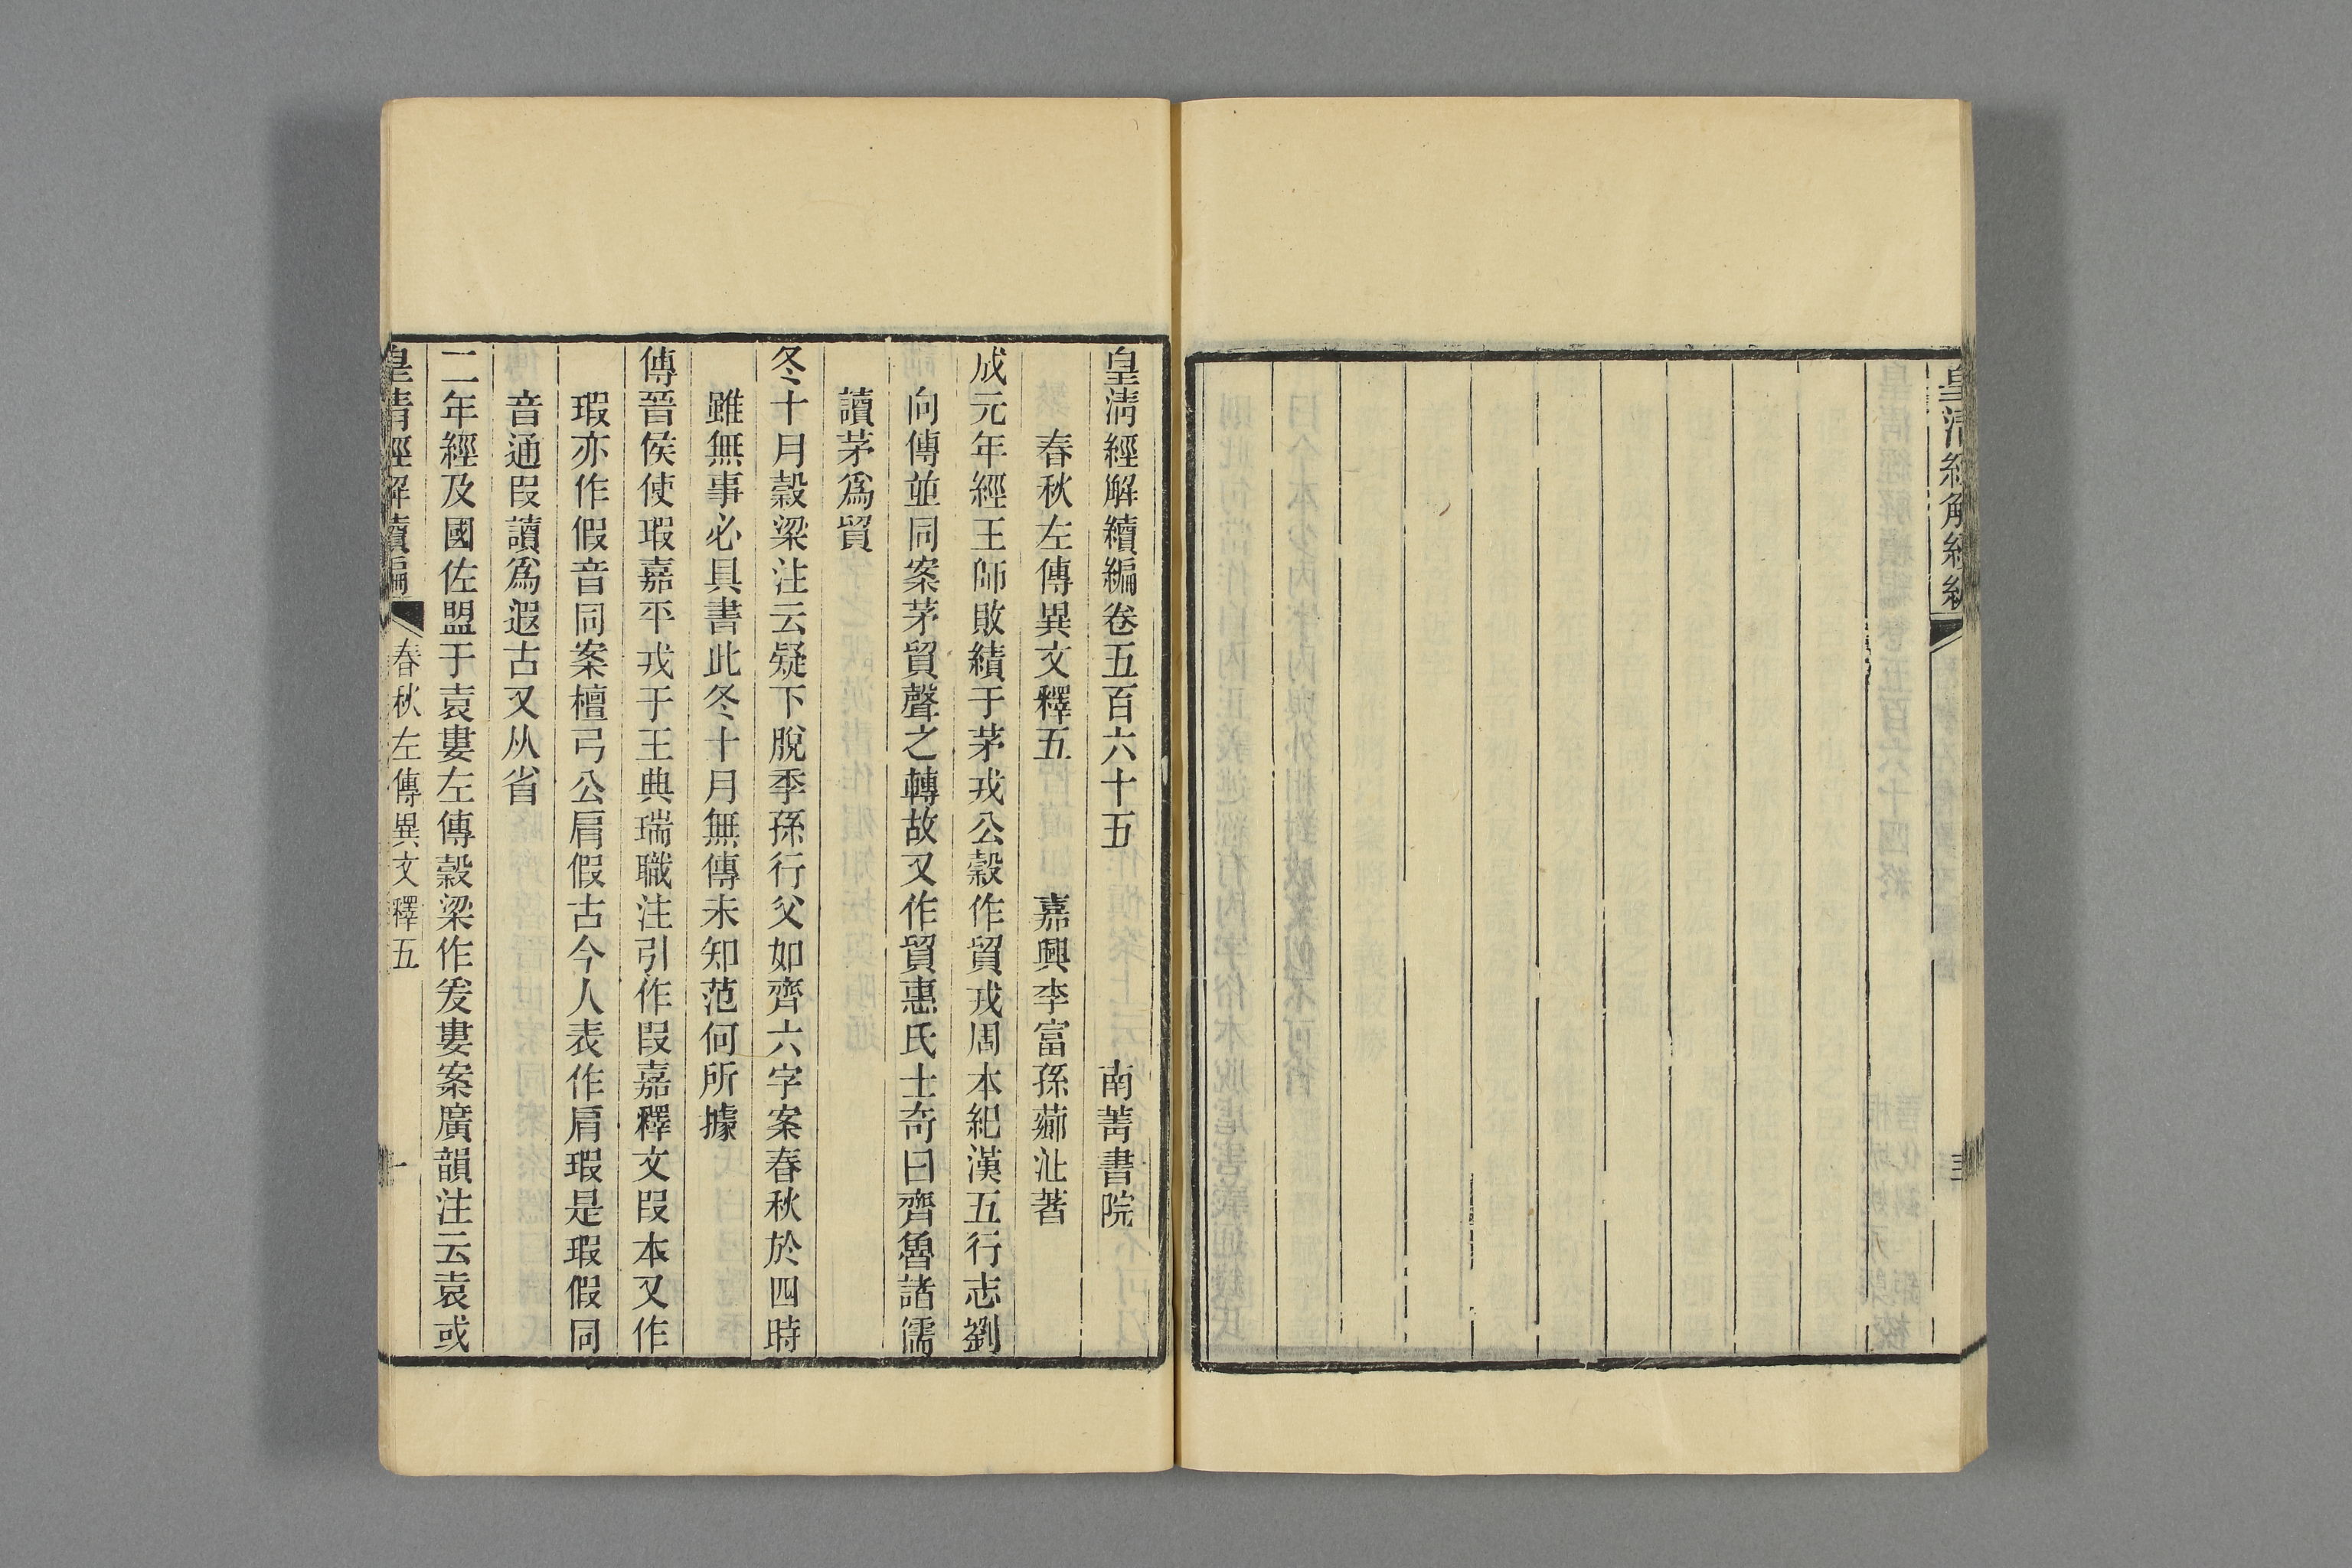 皇清經解續編
皇清經解續編卷五百六十五 南菁書院
春秋左傳異文釋五 嘉興李富孫薌沚著
成元年經王師敗績于茅戎公穀作貿戎周本紀漢五行志劉
向傳並同案茅貿聲之轉故又作貿惠氏士奇曰齊魯諸儒
讀茅爲貿
冬十月穀梁注云疑下脫季孫行父如齊六字案春秋於四時
雖無事必具書此冬十月無傳未知范何所據
傳晉侯使瑕嘉平戎于王典瑞職注引作叚嘉釋文叚本又作
瑕亦作假音同案檀弓公肩假古今人表作肩瑕是瑕假同
音通叚讀爲遐古又从省
二年經及國佐盟于袁婁左傳穀梁作爰婁案廣韻注云袁或
皇清經解續編 春秋左傳異文釋五 一